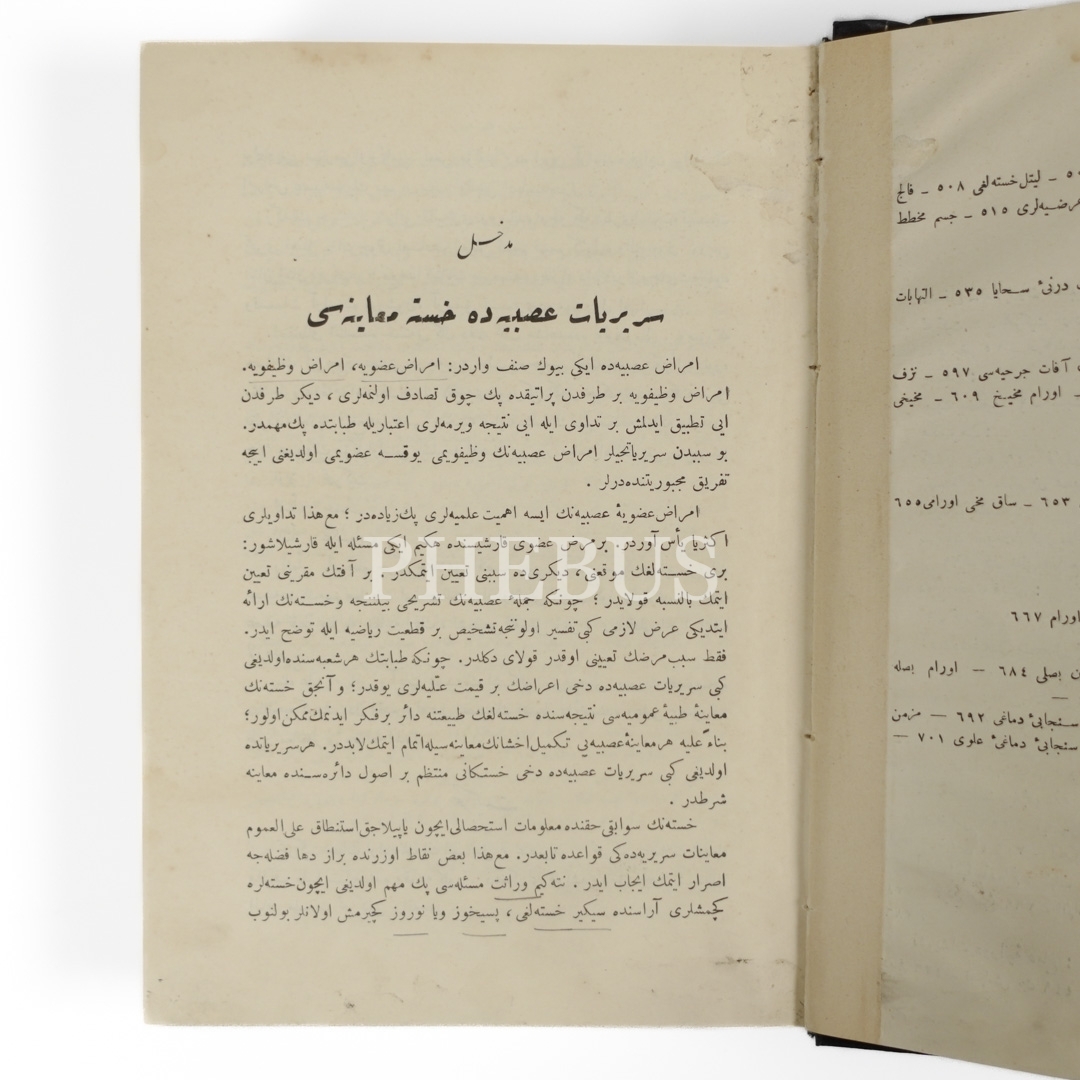 مدخل
سريريات عصبيه‌ده خسته معاينه‌سى
امراض عصبيه‌ده ايكى بيوك صنف واردر: امراض عضويه، امراض وظيفويه.
امراض وظيفويه بر طرفدن پراتيقده پك چوق تصادف اولنمه‌لرى ، ديكر طرفدن
ايى تطبيق ايدلمش بر تداوى ايله ايى نتيجه ويرمه‌لرى اعتباريله طبابتده پك مهمدر.
بو سببدن سريرياتجيلر امراض عصبيه‌نك وظيفويمى يوقسه عضويمى اولديغنى اييجه
تفريق مجبوريتنده‌درلر .
امراض عضويۀ عصبيه‌نك ايسه اهميت علميه‌لرى پك زياده‌در ؛ مع هذا تداويلرى
اكثريا يأس آوردر. بر مرض عضوى قارشيسنده حكيم ايكى مسئله ايله قارشيلاشور:
برى خسته‌لغك موقعنى ، ديكرى ده سببنى تعيين ايتمكدر . بر آفتك مقرينى تعيين
ايتمك بالنسبه قولايدر ؛ چونكه جملۀ عصبيه‌نك تشريحى بيلننجه و خسته‌نك ارائه
ايتديكى عرض لازمى كبى تفسير اولوننجه تشخيص بر قطعيت رياضيه ايله توضح ايدر.
فقط سبب مرضك تعيينى اوقدر قولاى دكلدر. چونكه طبابتك هر شعبه سنده اولديغى
كبى سريريات عصبيه‌ده دخى اعراضك بر قيمت عليه‌لرى يوقدر؛ و آنجق خسته‌نك
معاينۀ طبيۀ عموميه‌سى نتيجه‌سنده خسته‌لغك طبيعتنه دائر بر فكر ايدنمك ممكن اولور؛
بناءً عليه هر معاينۀ عصبيه‌يى تكميل اخشانك معاينه سيله اتمام ايتمك لابددر. هر سرياتده
اولديغى كبى سريريات عصبيه‌ده دخى خستكانى منتظم بر اصول دائره‌سنده معاينه
شرطدر .
خسته‌نك سوابقى حقنده معلومات استحصالى ايچون ياپيلاجق استنطاق على العموم
معاينات سريريه‌ده‌كى قواعده تابعدر. مع هذا بعض نقاط اوزرنده براز دها فضله‌جه
اصرار ايتمك ايجاب ايدر . نته‌كيم وراثت مسئله‌سى پك مهم اولديغى ايچون خسته‌لره
كچمشلرى آراسنده سيكير خسته‌لغى ، پسيخوز ويا نوروز كچيرمش اولانلر بولنوب
PHEBUS
ليتل خسته‌لغى ٥٠٨ – فالج
٥١٥ – جسم مخطط
درنئ سحايا ٥٣٥ – التهابات
آفات جرحيه‌سى ٥٩٧ – نزف
اورام مخيخ ٦٠٩ – مخيخى
٦٥٣ – ساق مخى اورامى ٦٥٥
اورام ٦٦٧
بصلى ٦٨٤ – اورام بصله
سنجابئ دماغى ٦٩٢ – مزمن
سنجابئ دماغئ علوى ٧٠١ –